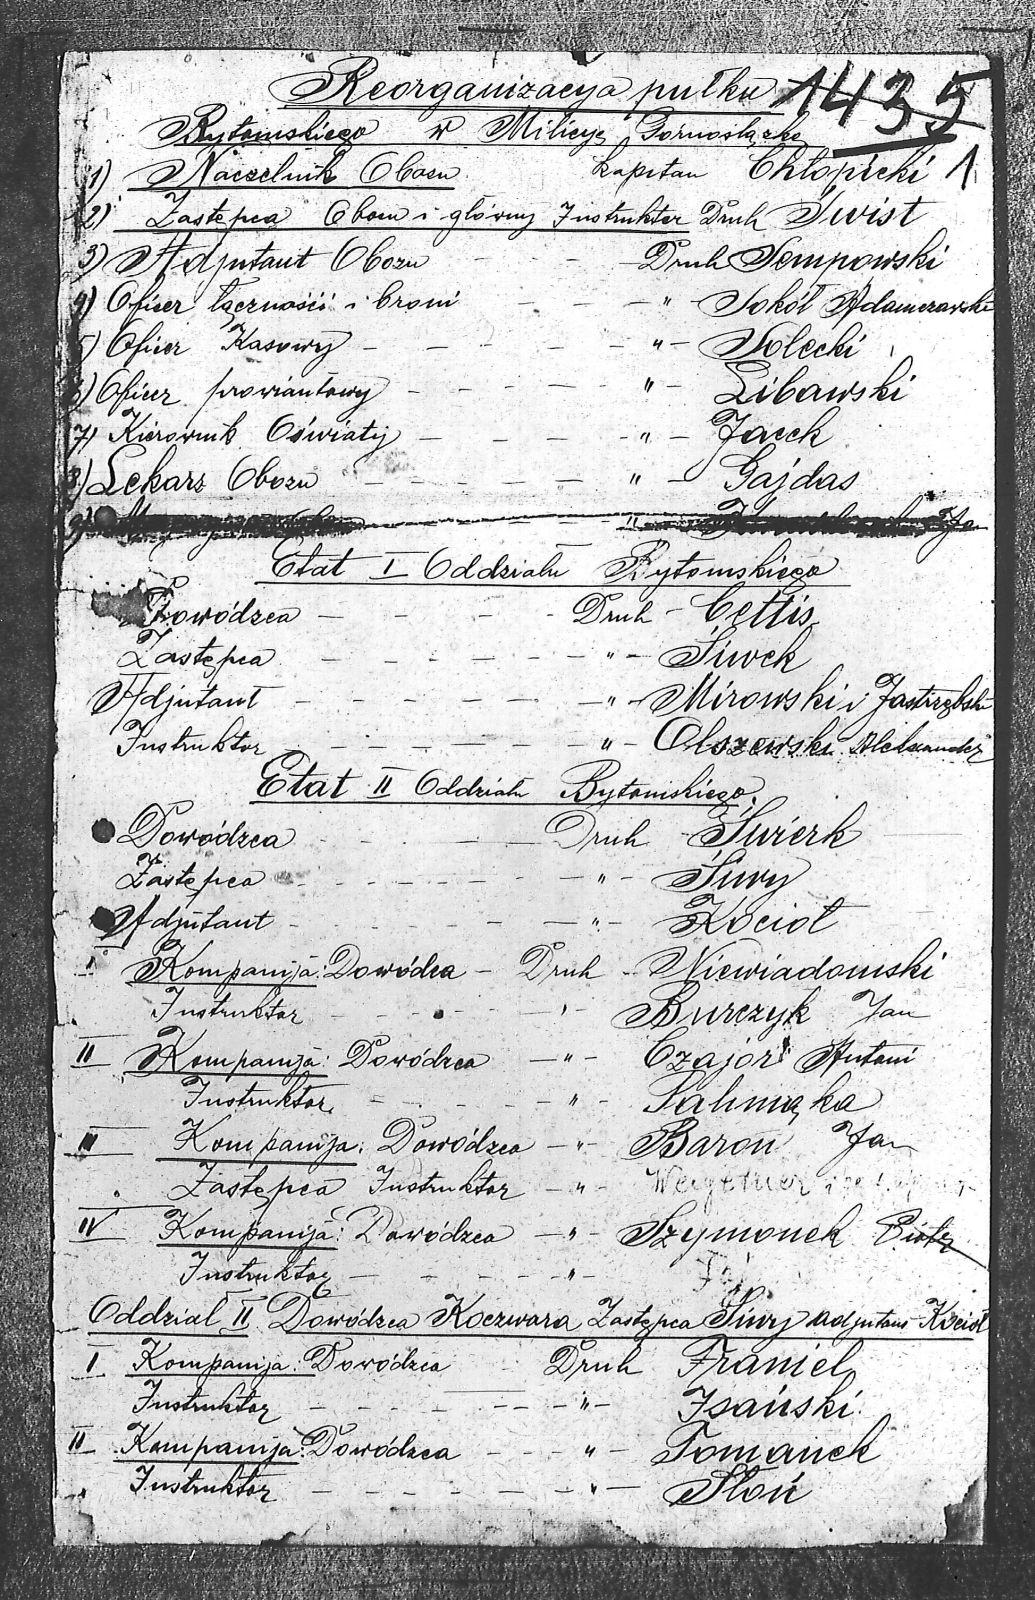 Reorganizacya pułku 1435
Bytomskiego w Milicyę Górnośląską 1
1) Naczelnik Obozu kapitan Chłopicki
2) Zastępca Obozu i główny Instruktor Druh Świst
3) Adjutant Obozu - - - Druh Sempowski
4) Oficer łączności i broni - - - " - Sokół Adamczewski
5) Oficer Kasowy - - - - - " - Solecki
6) Oficer prowiantowy - - - - " - Libawski
7) Kierownik Oświaty - - - - " - Jacek
8) Lekarz Obozu - - - - - " - Gajdas
9)
Etat I Oddziału Bytomskiego
Dowódzca - - - - Druh - Cettis
Zastępca - - - - - - " - Siwek
Adjutant - - - - - " - Mirowski i Jastrzębski
Instruktor - - - - - " - Olszewski Aleksander
Etat II Oddziału Bytomskiego
Dowódzca - - - Druh - Świerk
Zastępca - - - - - " - Siwy
Adjutant - - - - " - Kocioł
I Kompanija: Dowódca - Druh - Niewiadomski
Instruktor - - - - " Burczyk Jan
II Kompanija: Dowódzca - " - Czajor Antoni
Instruktor - - - - " - Sahmąka
III Kompanija: Dowódzca - " - Baron Jan
Zastępca Instruktor - " -
IV Kompanija: Dowódzca - " - Szymonek Piotr
Instruktor - - - - " -
Oddział II Dowódzca Koczwara Zastępca Siwy adjutant Kocioł
I Kompanija: Dowódzca - Druh Franiel
Instruktor - - - - - " - Isański
II Kompanija: Dowódzca - - - " - Tomanek
Instruktor - - - - - " - Słoń